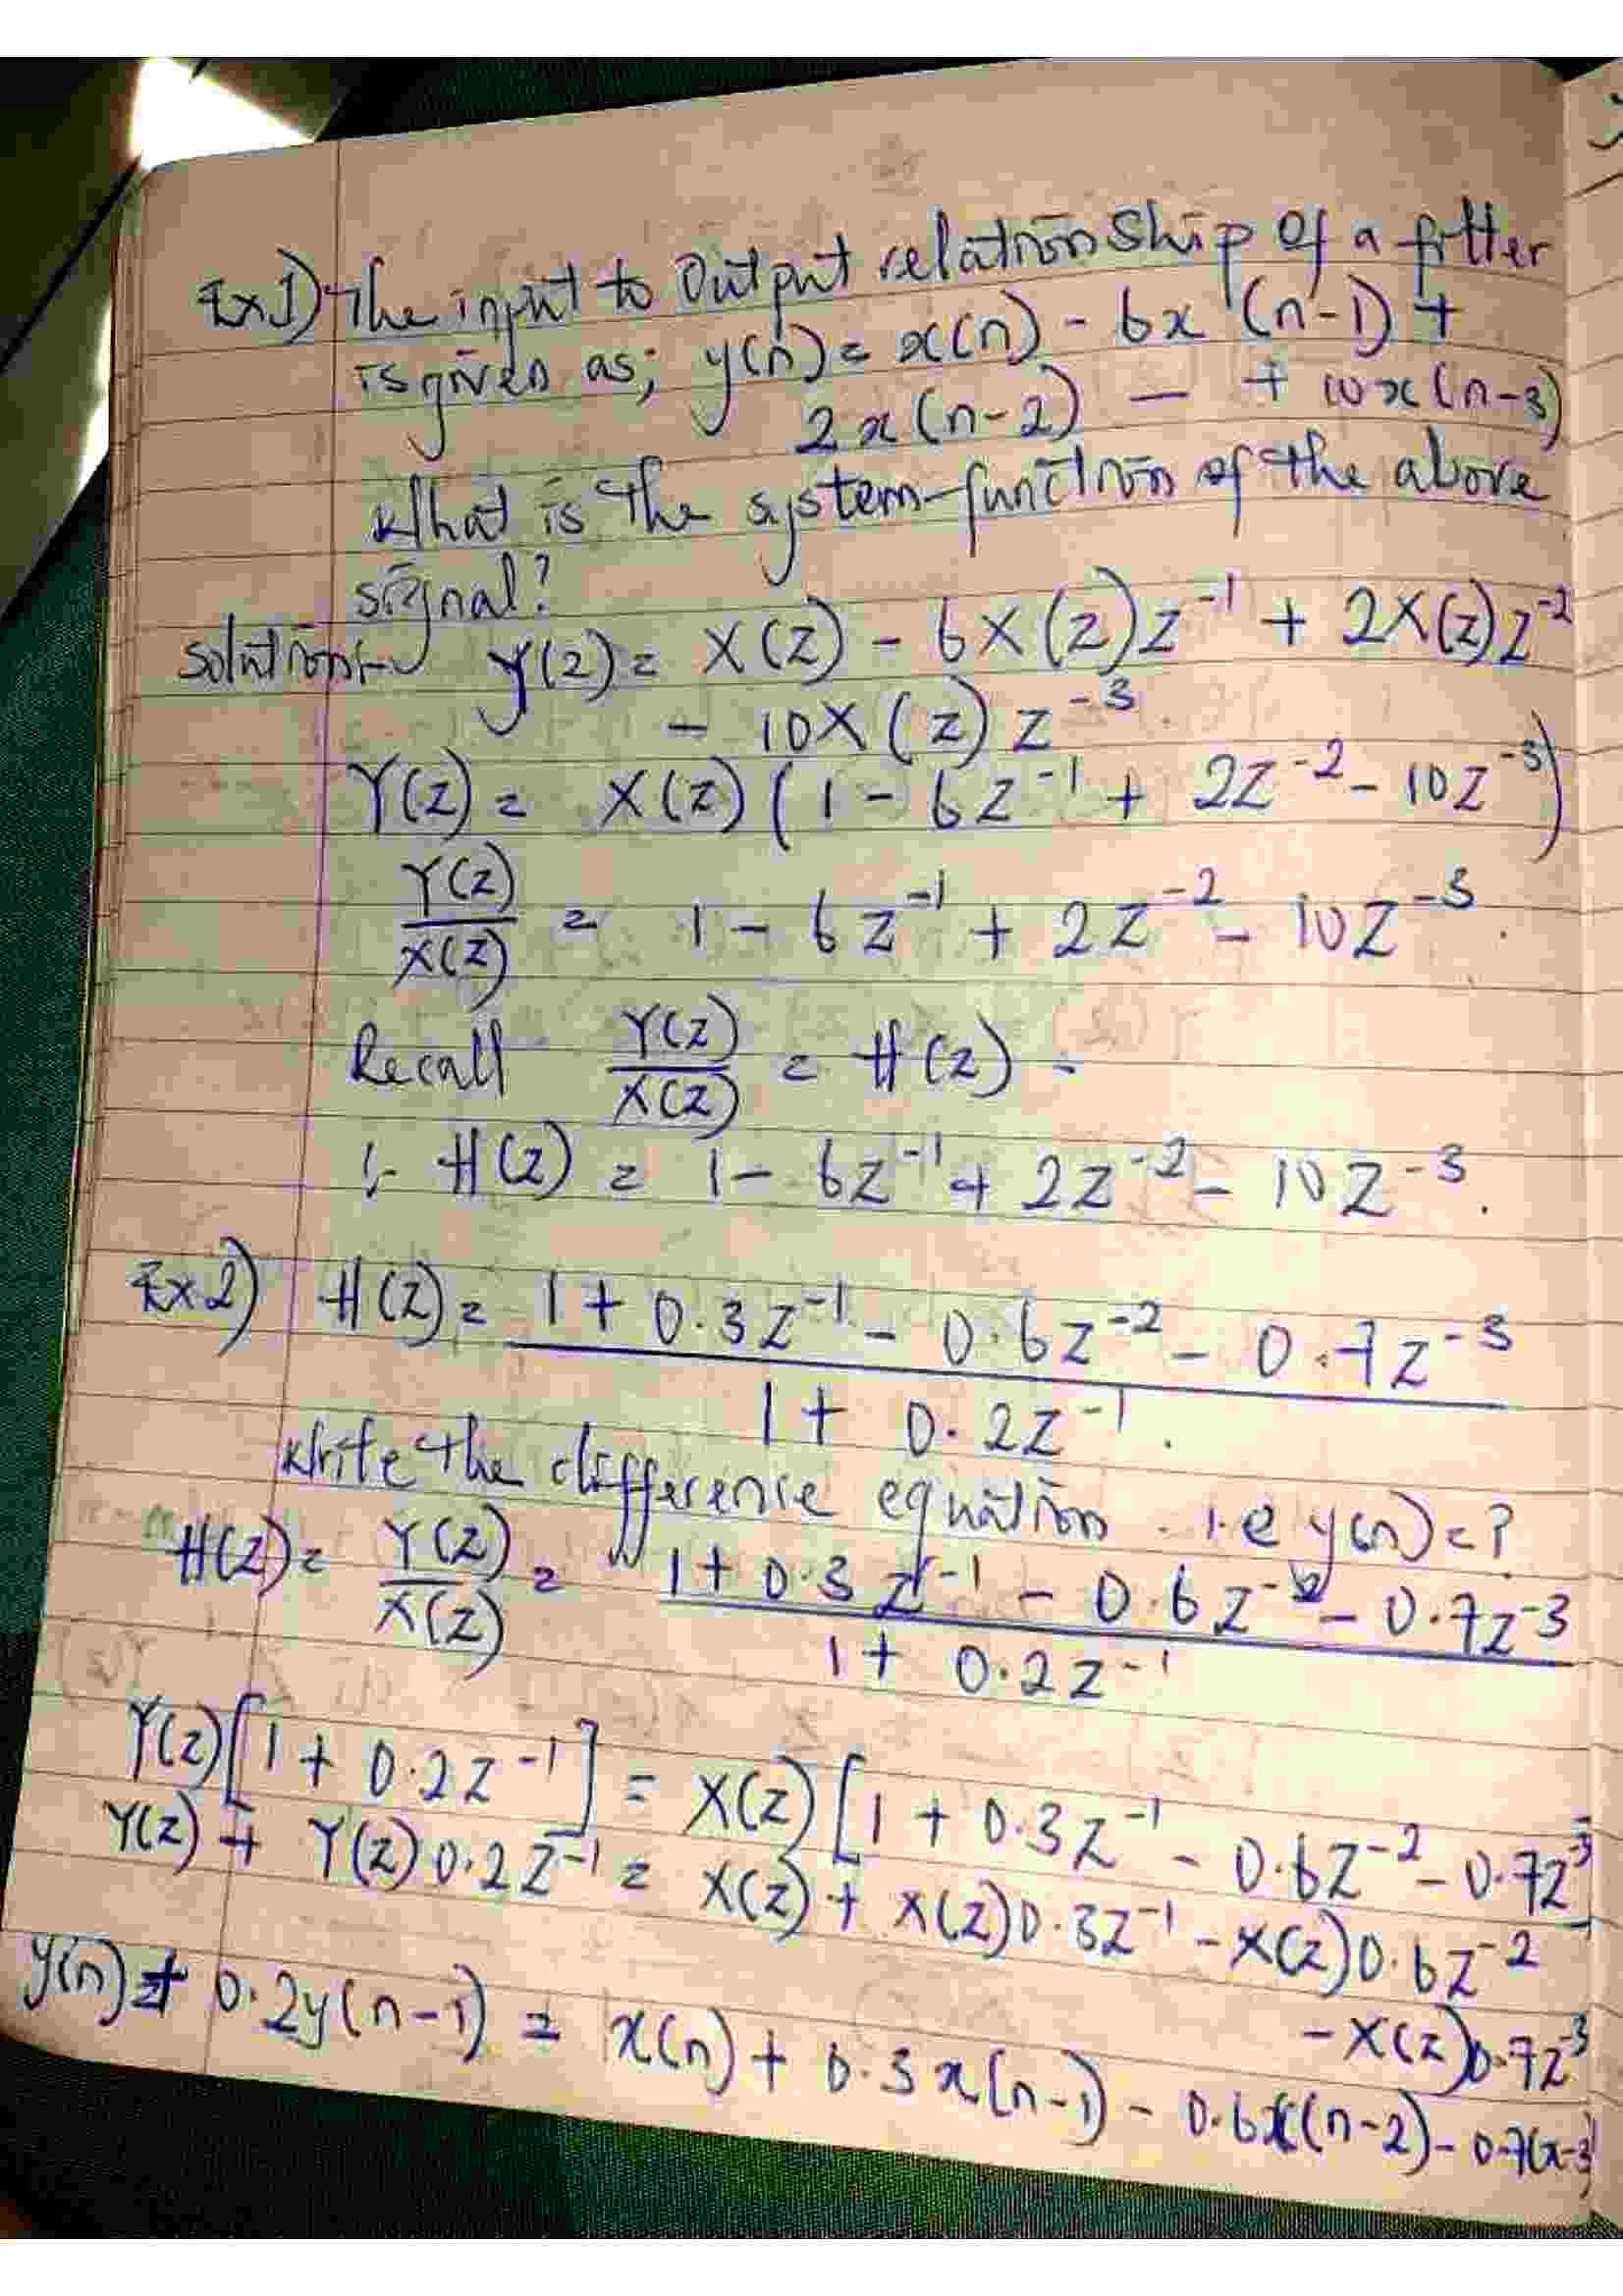 Ex 1) The input to output relationship of a filter
is given as; y(n) = x(n) - 6x(n-1) +
2x(n-2) - + 10x(n-3)
What is the system function of the above
signal?
Solution:- Y(z) = X(z) - 6X(z)z⁻¹ + 2X(z)z⁻²
- 10X(z)z⁻³.
Y(z) = X(z)(1 - 6z⁻¹ + 2z⁻² - 10z⁻³)
Y(z)/X(z) = 1 - 6z⁻¹ + 2z⁻² - 10z⁻³.
Recall Y(z)/X(z) = H(z) -
:- H(z) = 1 - 6z⁻¹ + 2z⁻² - 10z⁻³.
Ex 2) H(z) = 1 + 0.3z⁻¹ - 0.6z⁻² - 0.7z⁻³
1 + 0.2z⁻¹.
Write the difference equation. i.e y(n) = ?
H(z) = Y(z)/X(z) = 1 + 0.3z⁻¹ - 0.6z⁻² - 0.7z⁻³
1 + 0.2z⁻¹
Y(z)[1 + 0.2z⁻¹] = X(z)[1 + 0.3z⁻¹ - 0.6z⁻² - 0.7z⁻³
Y(z) + Y(z)0.2z⁻¹ = X(z) + X(z)0.3z⁻¹ - X(z)0.6z⁻²
- X(z)0.7z⁻³
y(n) + 0.2y(n-1) = x(n) + 0.3x(n-1) - 0.6x(n-2) - 0.7(x-3)